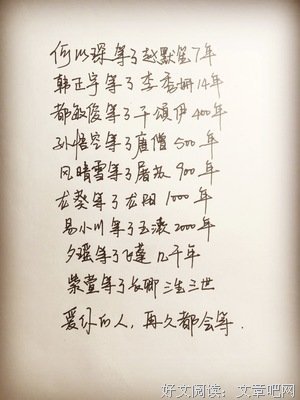 何以琛等了赵默笙7年
韩正宇等了李秀妍14年
都敏俊等了千頌伊400年
孙悟空等了唐僧500年
风晴雪等了屠苏900年
龙葵等了龙阳1000年
易小川等了玉漱2000年
夕瑶等了飞蓬几千年
紫萱等了长卿三生三世
爱你的人，再久都会等.
好文阅读：文章吧网